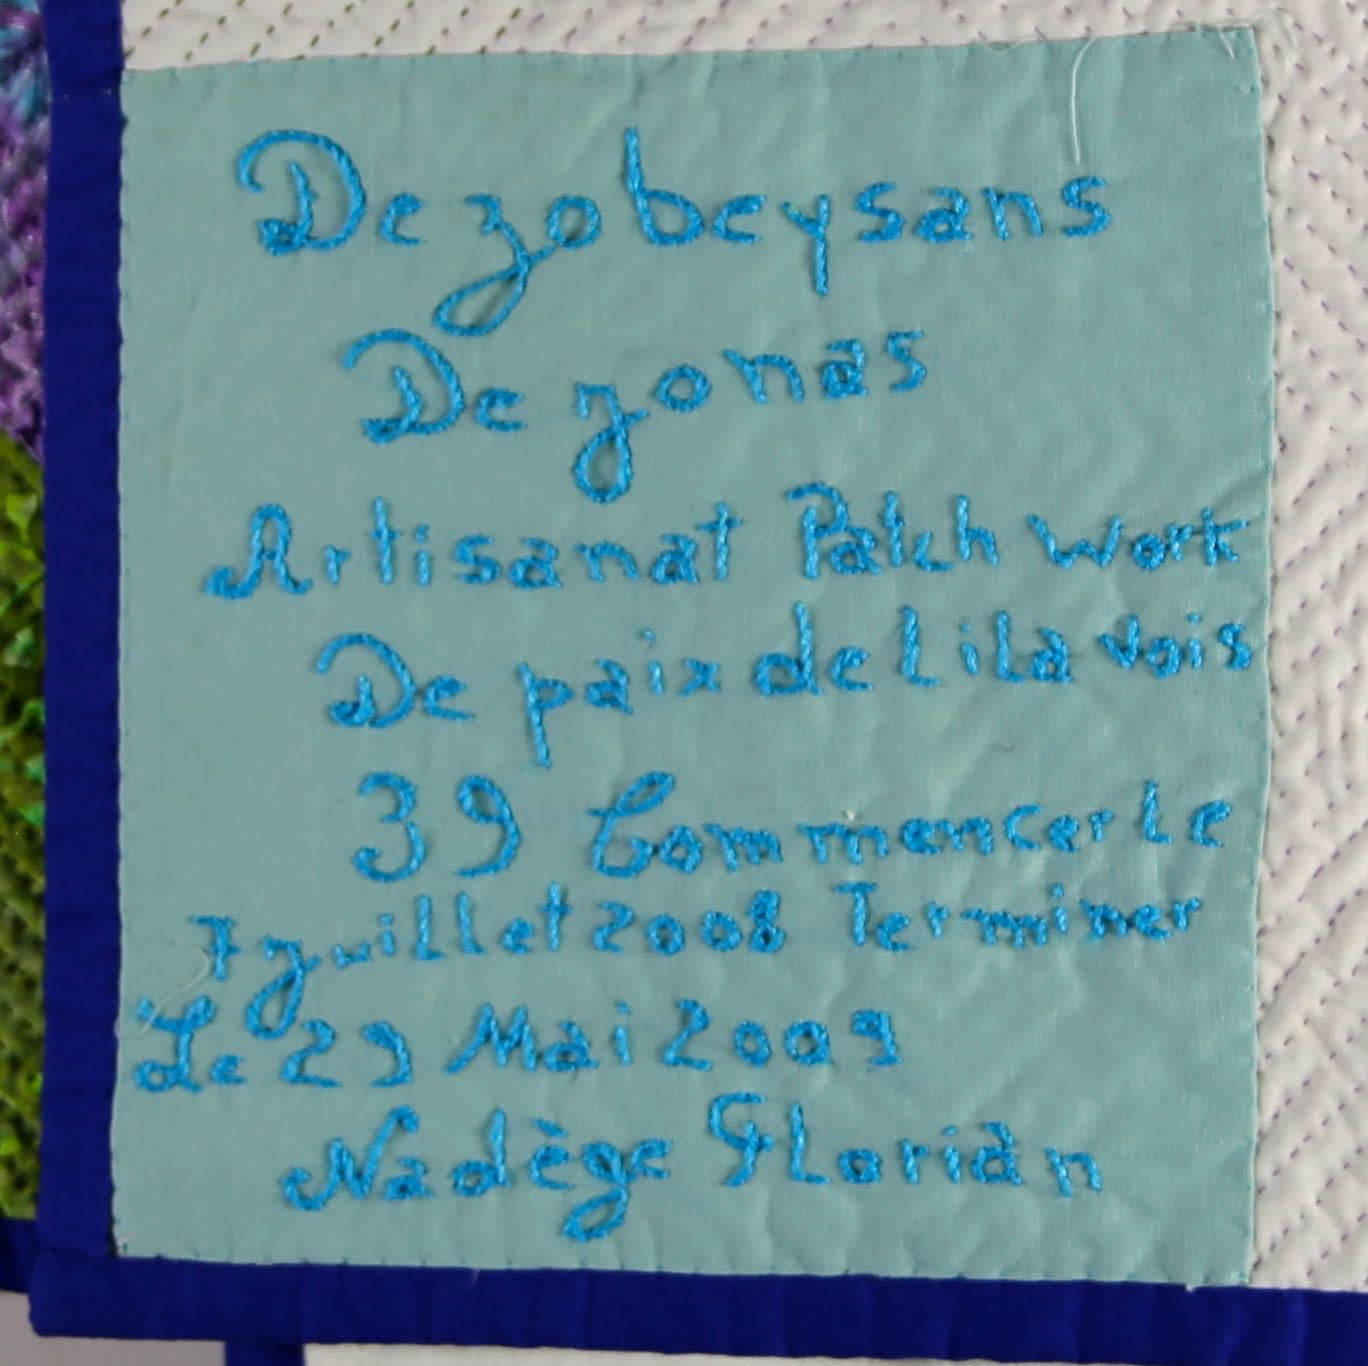 De zobeysans
De zonas
Artisanat Patch work
De paix de Lilavois
39 Commencer Le
7 juillet 2008 Terminer
Le 29 Mai 2009
Nadège FLorian